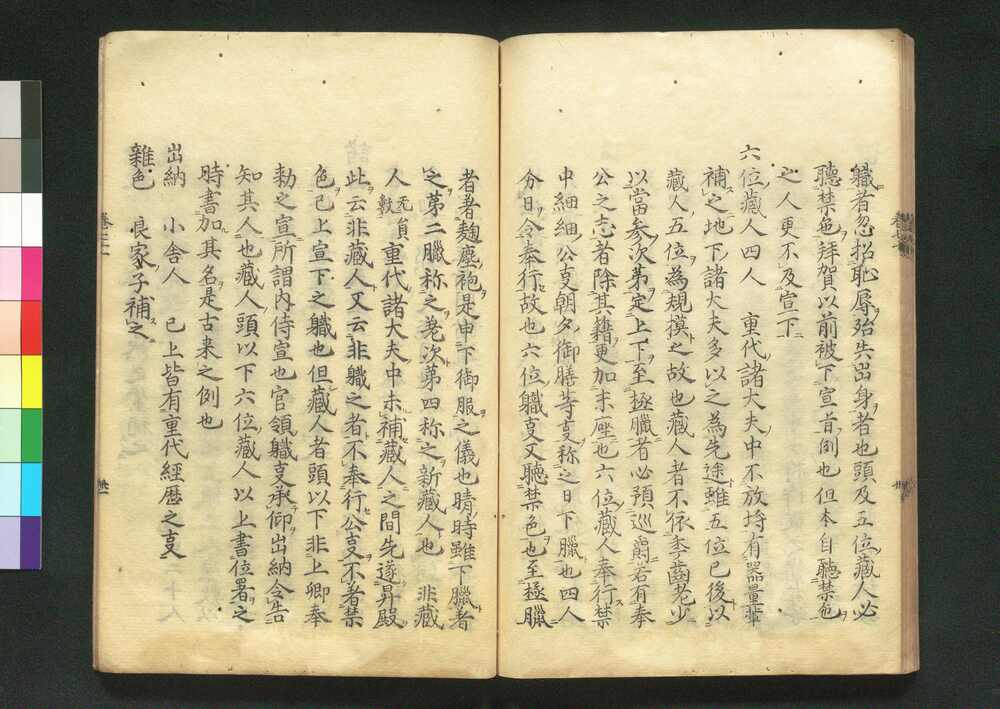 職者忽招恥辱殆失出身者也頭及五位藏人必
聽禁色拜賀以前被下宣旨例也但本自聽禁色
之人更不及宣下
六位藏人四人　重代諸大夫中不放埒有器量輩
補之地下諸大夫多以之為先途雖五位已後以
藏人五位為規摸之故也藏人者不依年齒老少
以當参次第定上下至極臈者必預巡爵若有奉
公之志者除其籍更加末座也六位藏人奉行禁
中細細公事朝夕御膳等事称之日下臈也四人
分日令奉行故也六位職事又聽禁色也至極臈
者著麹塵袍是申下御服之儀也晴時雖下臈著
之第二臈称之差次第四称之新藏人也　非藏
人 无員數 重代諸大夫中未補藏人之間先遂昇殿
此云非藏人又云非職之者不奉行公事不著禁
色已上宣下之職也但藏人者頭以下非上卿奉
勅之宣所謂内侍宣也官領職事承仰出納令告
知其人也藏人頭以下六位藏人以上書位署之
時書加其名是古来之例也
出納　小舎人　已上皆有重代經歴之事
雜色　良家子補之